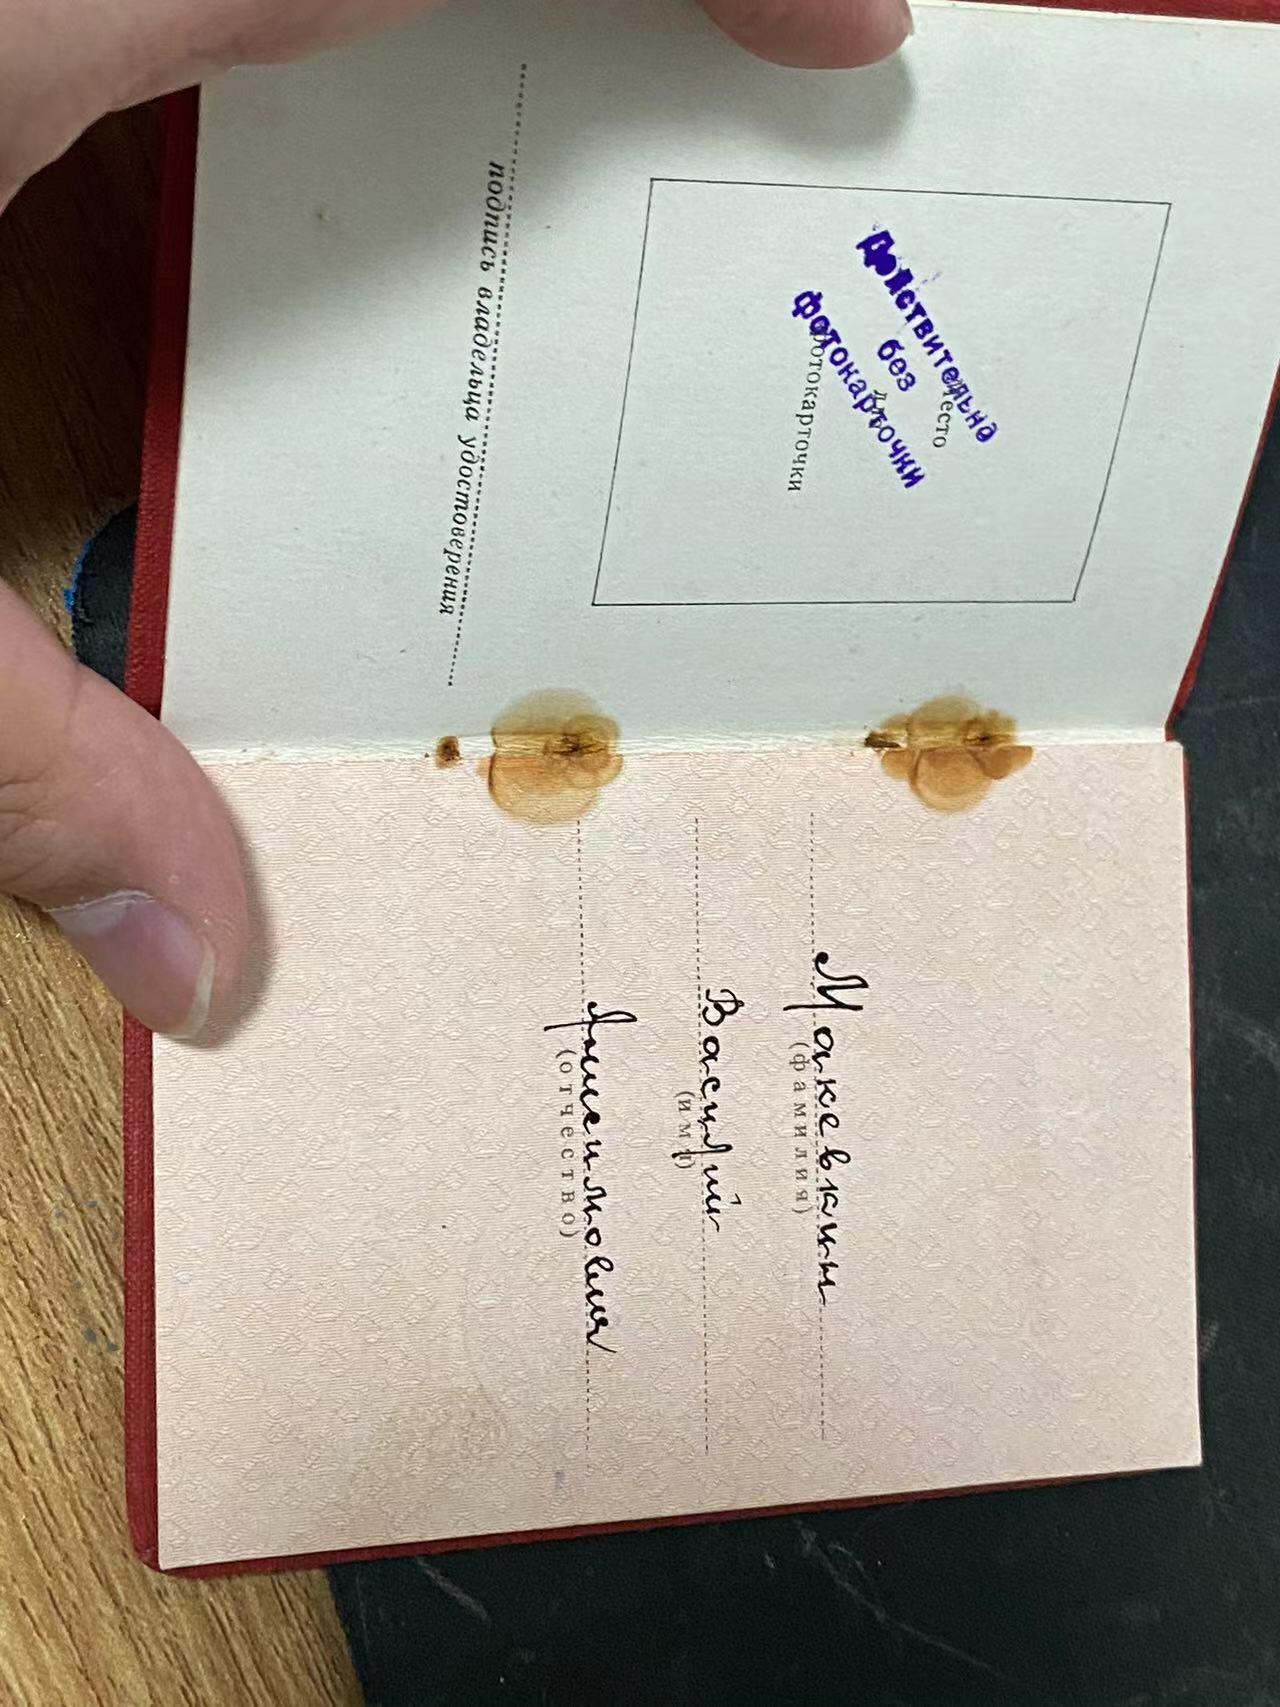 место
для
фотокарточки
Действительно
без
фотокарточки
подпись владельца удостоверения
(фамилия)
Василий
(имя)
(отчество)